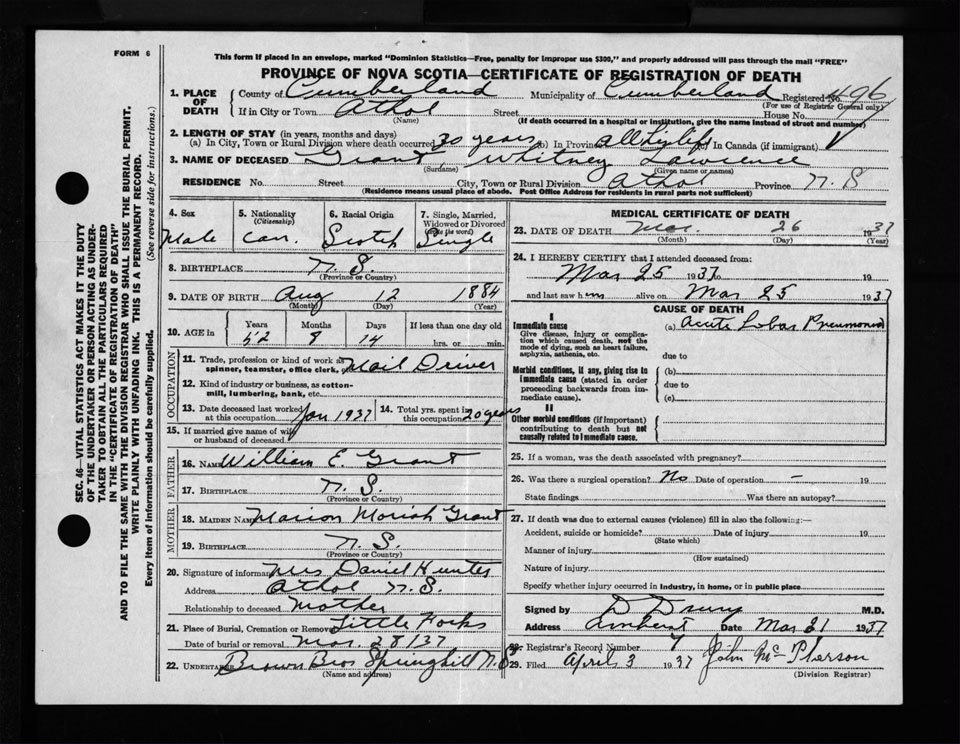 FORM 6
This form if placed in an envelope, marked "Dominion Statistics—Free, penalty for improper use $300," and properly addressed will pass through the mail "FREE"
PROVINCE OF NOVA SCOTIA—CERTIFICATE OF REGISTRATION OF DEATH
SEC. 46—VITAL STATISTICS ACT MAKES IT THE DUTY
OF THE UNDERTAKER OR PERSON ACTING AS UNDER-
TAKER TO OBTAIN ALL THE PARTICULARS REQUIRED
IN THE "CERTIFICATE OF REGISTRATION OF DEATH"
AND TO FILE THE SAME WITH THE DIVISION REGISTRAR WHO SHALL ISSUE THE BURIAL PERMIT.
WRITE PLAINLY WITH UNFADING INK. THIS IS A PERMANENT RECORD.
Every item of information should be carefully supplied. (See reverse side for instructions.)
1. PLACE OF DEATH
County of Cumberland Municipality of Cumberland Registered No. 496
(For use of Registrar General only)
If in City or Town Athol Street House No.
(Name) (If death occurred in a hospital or institution, give the name instead of street and number)
2. LENGTH OF STAY (in years, months and days)
(a) In City, Town or Rural Division where death occurred 30 years (b) In Province all his life In Canada (if immigrant)
3. NAME OF DECEASED Grant, Whitney Lawrence
(Surname) (Given name or names)
RESIDENCE No. Street City, Town or Rural Division Athol Province N. S
(Residence means usual place of abode. Post Office Address for residents in rural parts not sufficient)
4. Sex Male
5. Nationality (Citizenship) Can.
6. Racial Origin Scotch
7. Single, Married, Widowed or Divorced (write the word) Single
8. BIRTHPLACE N. S.
(Province or Country)
9. DATE OF BIRTH Aug 12 1884
(Month) (Day) (Year)
10. AGE in Years Months Days If less than one day old
52 14 hrs. or min.
OCCUPATION
11. Trade, profession or kind of work as spinner, teamster, office clerk, Mail Driver
12. Kind of industry or business, as cotton-mill, lumbering, bank, etc.
13. Date deceased last worked at this occupation Jan 1937
14. Total yrs. spent in this occupation 20 years
15. If married give name of wife or husband of deceased
FATHER
16. NAME William E. Grant
17. BIRTHPLACE N. S.
(Province or Country)
MOTHER
18. MAIDEN NAME Marion Moriah Grant
19. BIRTHPLACE N. S.
(Province or Country)
20. Signature of informant Mrs Daniel Hunter
Address Athol N. S.
Relationship to deceased Mother
21. Place of Burial, Cremation or Removal Little Forks
Date of burial or removal Mar. 28/37
22. UNDERTAKER Brown Bros Springhill N. S
(Name and address)
MEDICAL CERTIFICATE OF DEATH
23. DATE OF DEATH Mar. 26 1937
(Month) (Day) (Year)
24. I HEREBY CERTIFY that I attended deceased from:
Mar 25 1937 to 19
and last saw him alive on Mar 25 1937
CAUSE OF DEATH
I
Immediate cause (a) Acute Lobar Pneumonia
Give disease, injury or complication which caused death, not the mode of dying, such as heart failure, asphyxia, asthenia, etc.
due to
Morbid conditions, if any, giving rise to immediate cause (stated in order proceeding backwards from immediate cause).
(b)
due to
(c)
II
Other morbid conditions (if important) contributing to death but not causally related to immediate cause.
25. If a woman, was the death associated with pregnancy?
26. Was there a surgical operation? No Date of operation – 19
State findings Was there an autopsy?
27. If death was due to external causes (violence) fill in also the following:—
Accident, suicide or homicide? Date of injury 19
(State which)
Manner of injury
(How sustained)
Nature of injury
Specify whether injury occurred in industry, in home, or in public place
Signed by D Drury M.D.
Address Amherst Date Mar 31 1937
28. Registrar's Record Number 7
29. Filed April 3 1937 John McPherson
(Division Registrar)